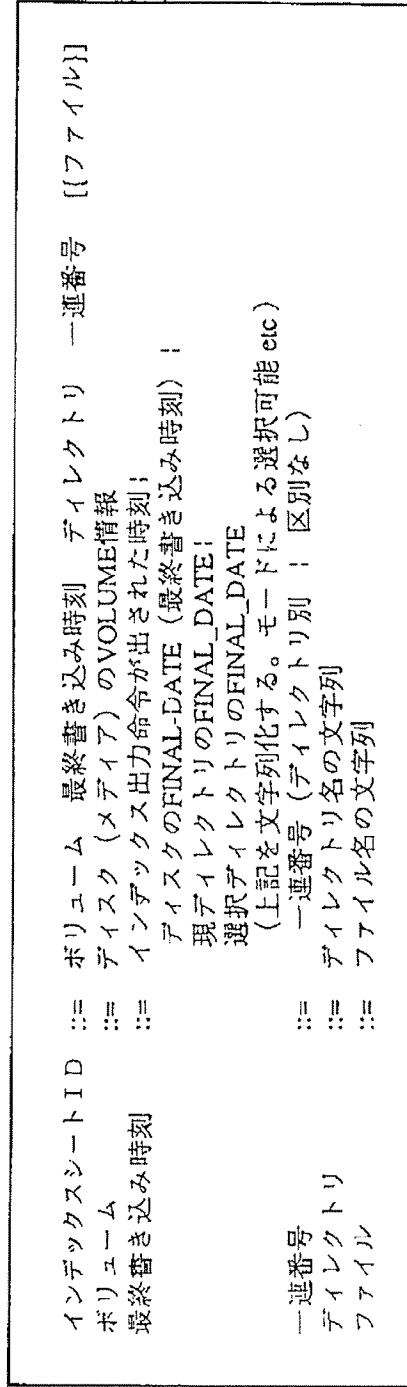 インデックスシートＩＤ ::= ボリューム 最終書き込み時刻 ディレクトリ 一連番号 [{ファイル}]
ボリューム ::= ディスク（メディア）のVOLUME情報
最終書き込み時刻 ::= インデックス出力命令が出された時刻¦
ディスクのFINAL-DATE（最終書き込み時刻）¦
現ディレクトリのFINAL_DATE¦
選択ディレクトリのFINAL_DATE
(上記を文字列化する。モードによる選択可能 etc)
一連番号 ::= 一連番号（ディレクトリ別 ¦ 区別なし）
ディレクトリ ::= ディレクトリ名の文字列
ファイル ::= ファイル名の文字列